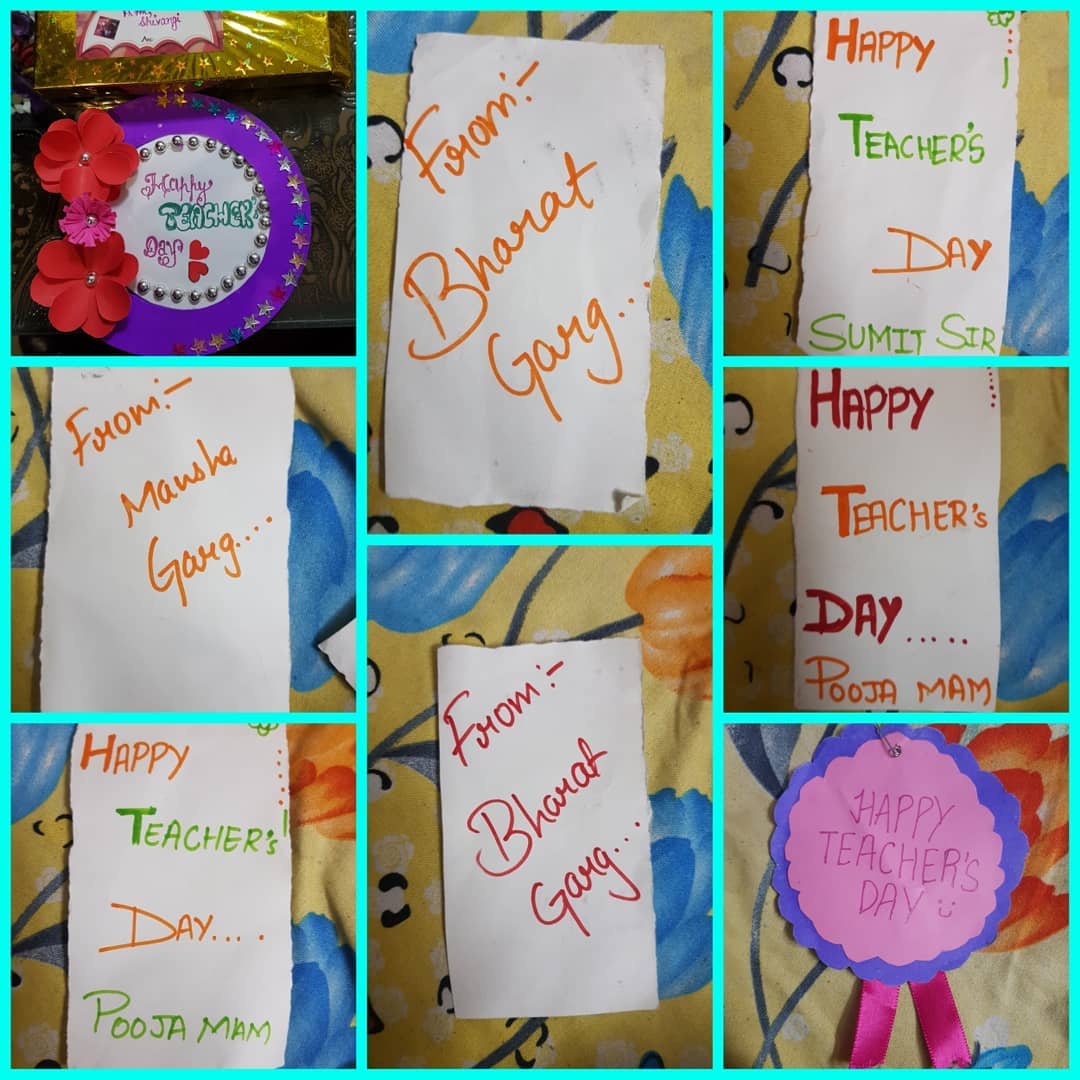 Shivangi
Happy
TEACHER'
Day
From:-
Bharat
Garg...
HAPPY
TEACHER'S
DAY
SUMIT SIR
From:-
Mansha
Garg...
HAPPY
TEACHER's
DAY.....
POOJA MAM
HAPPY
TEACHER's
DAY....
POOJA MAM
From:-
Bharat
Garg...
HAPPY
TEACHER'S
DAY